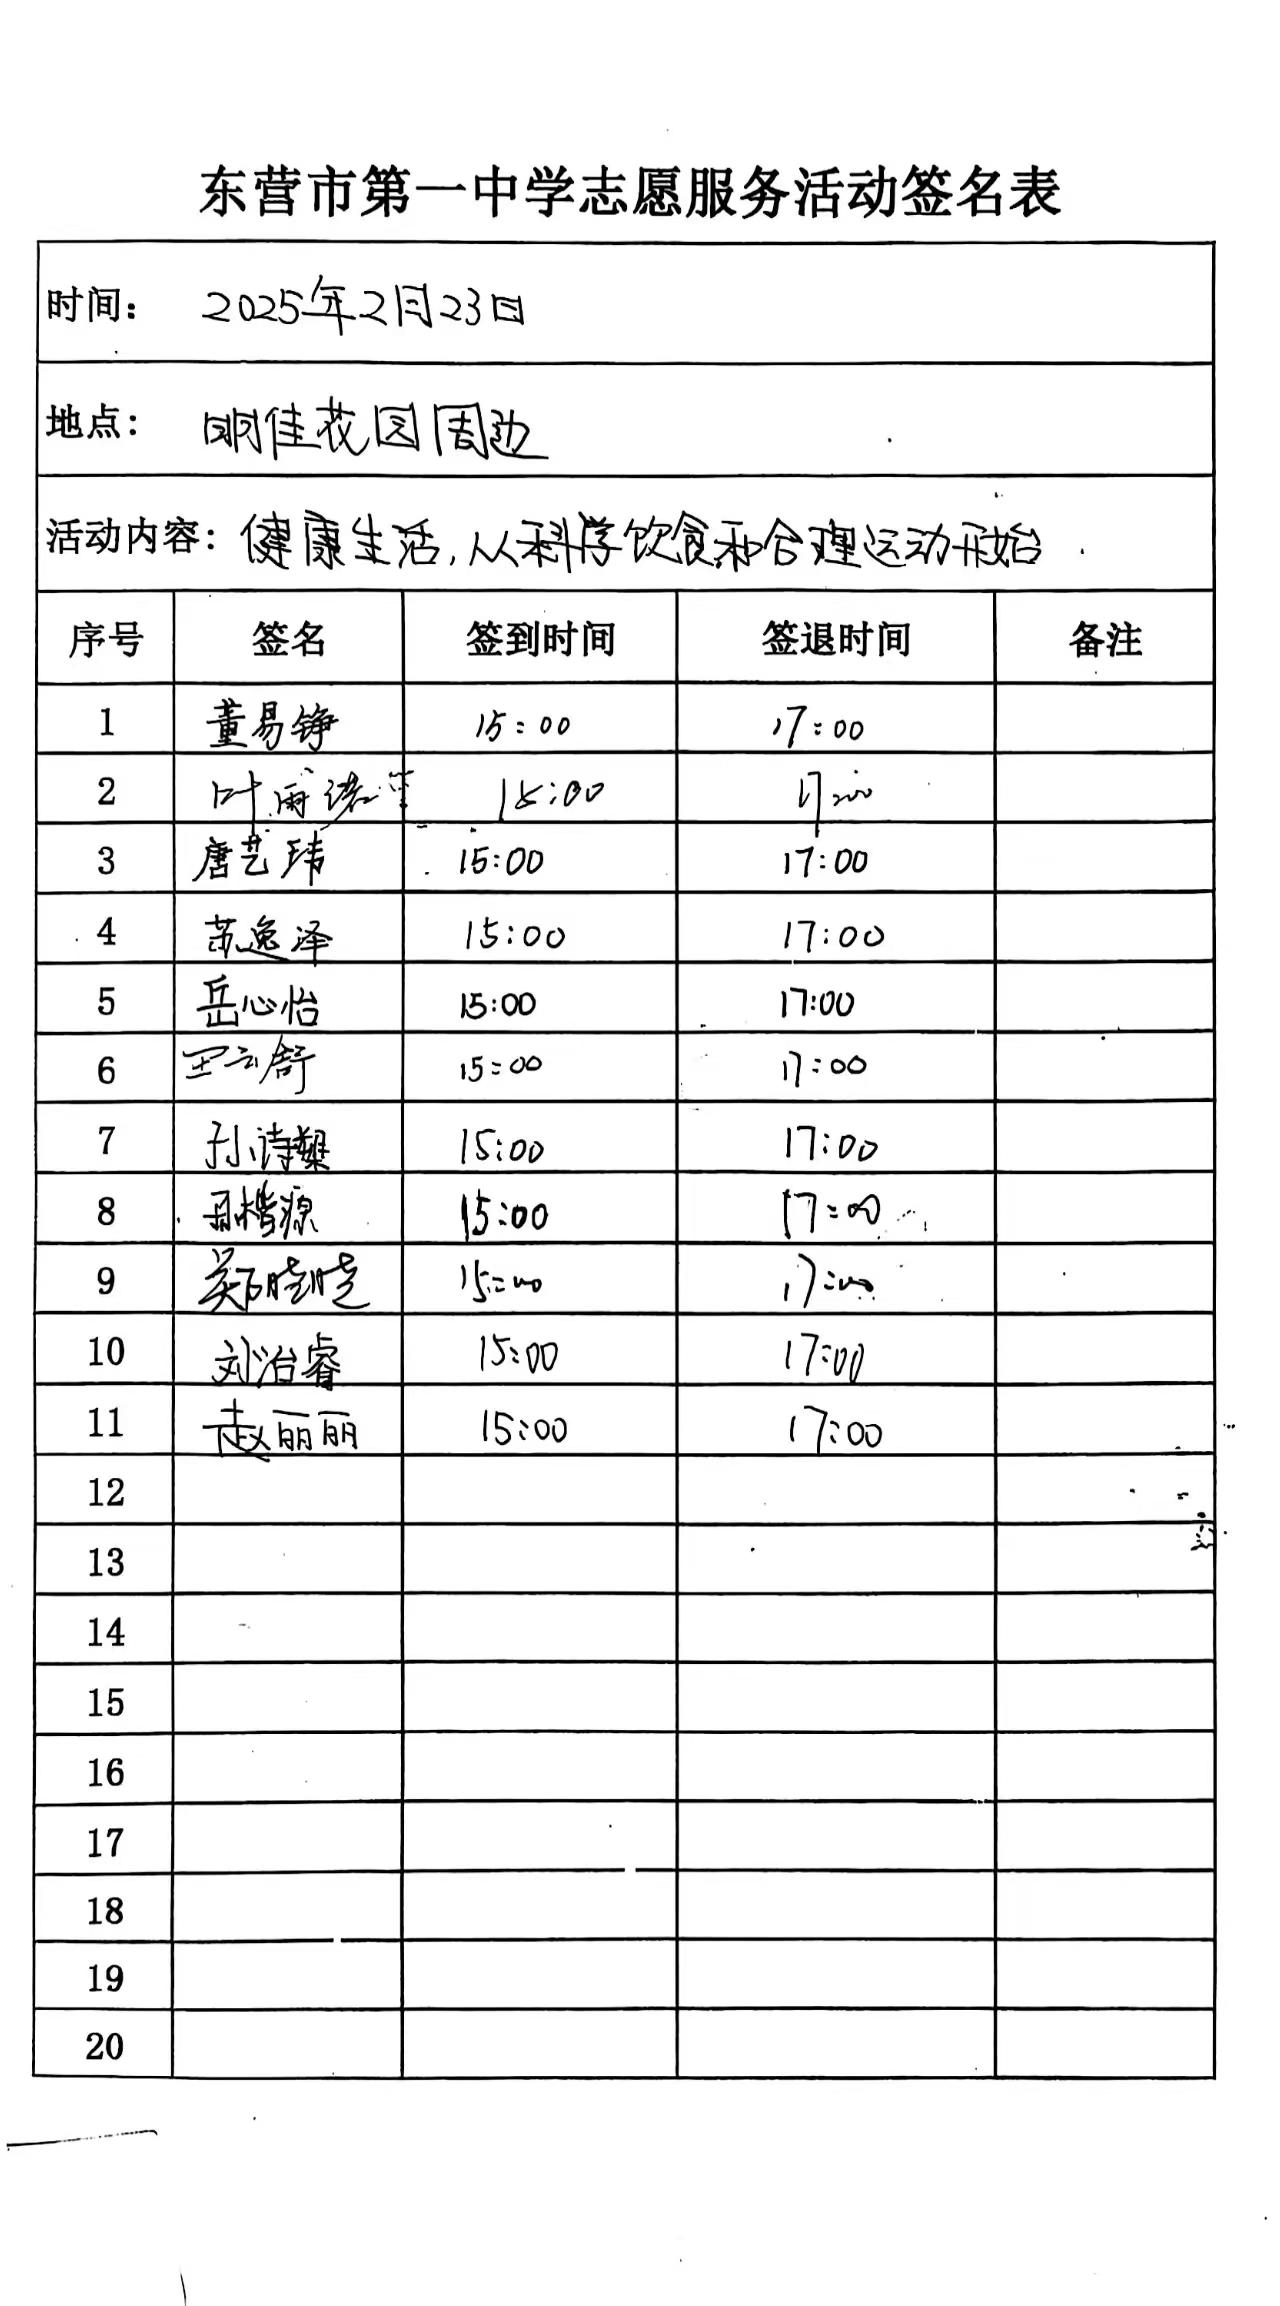 东营市第一中学志愿服务活动签名表
时间： 2025年2月23日
地点： 明佳花园周边
活动内容：健康生活，从科学饮食和合理运动开始.
序号 签名 签到时间 签退时间 备注
1 董易铮 15:00 17:00
2 叶雨诺 15:00 17:00
3 唐艺玮 15:00 17:00
4 苏逸泽 15:00 17:00
5 岳心怡 15:00 17:00
6 王云舒 15:00 17:00
7 孙诗 15:00 17:00
8 楷源 15:00 17:00
9 郑晓晓 15:00 17:00
10 刘治睿 15:00 17:00
11 赵丽丽 15:00 17:00
12
13
14
15
16
17
18
19
20